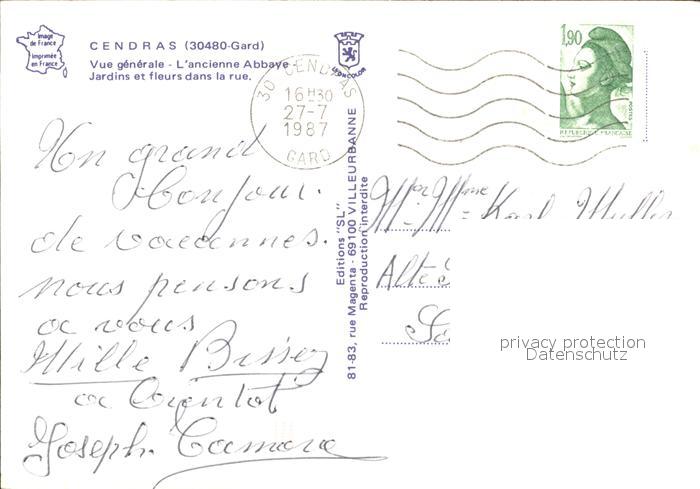 Image
de France
Imprimée
en France
CENDRAS (30480-Gard)
Vue générale - L'ancienne Abbaye
Jardins et fleurs dans la rue.
LYONCOLOR
30 CENDRAS
16H30
27-7
1987
GARD
1,90
POSTES
REPUBLIQUE FRANCAISE
Un grand
Bonjour.
de vacannes.
nous pensons
a vous
Mille Bisses
a Bientot
Joseph. Camara
Editions "SL"
81-83, rue Magenta - 69100 VILLEURBANNE
Reproduction interdite
Mr Mme Karl Muller
Alte
privacy protection
Datenschutz